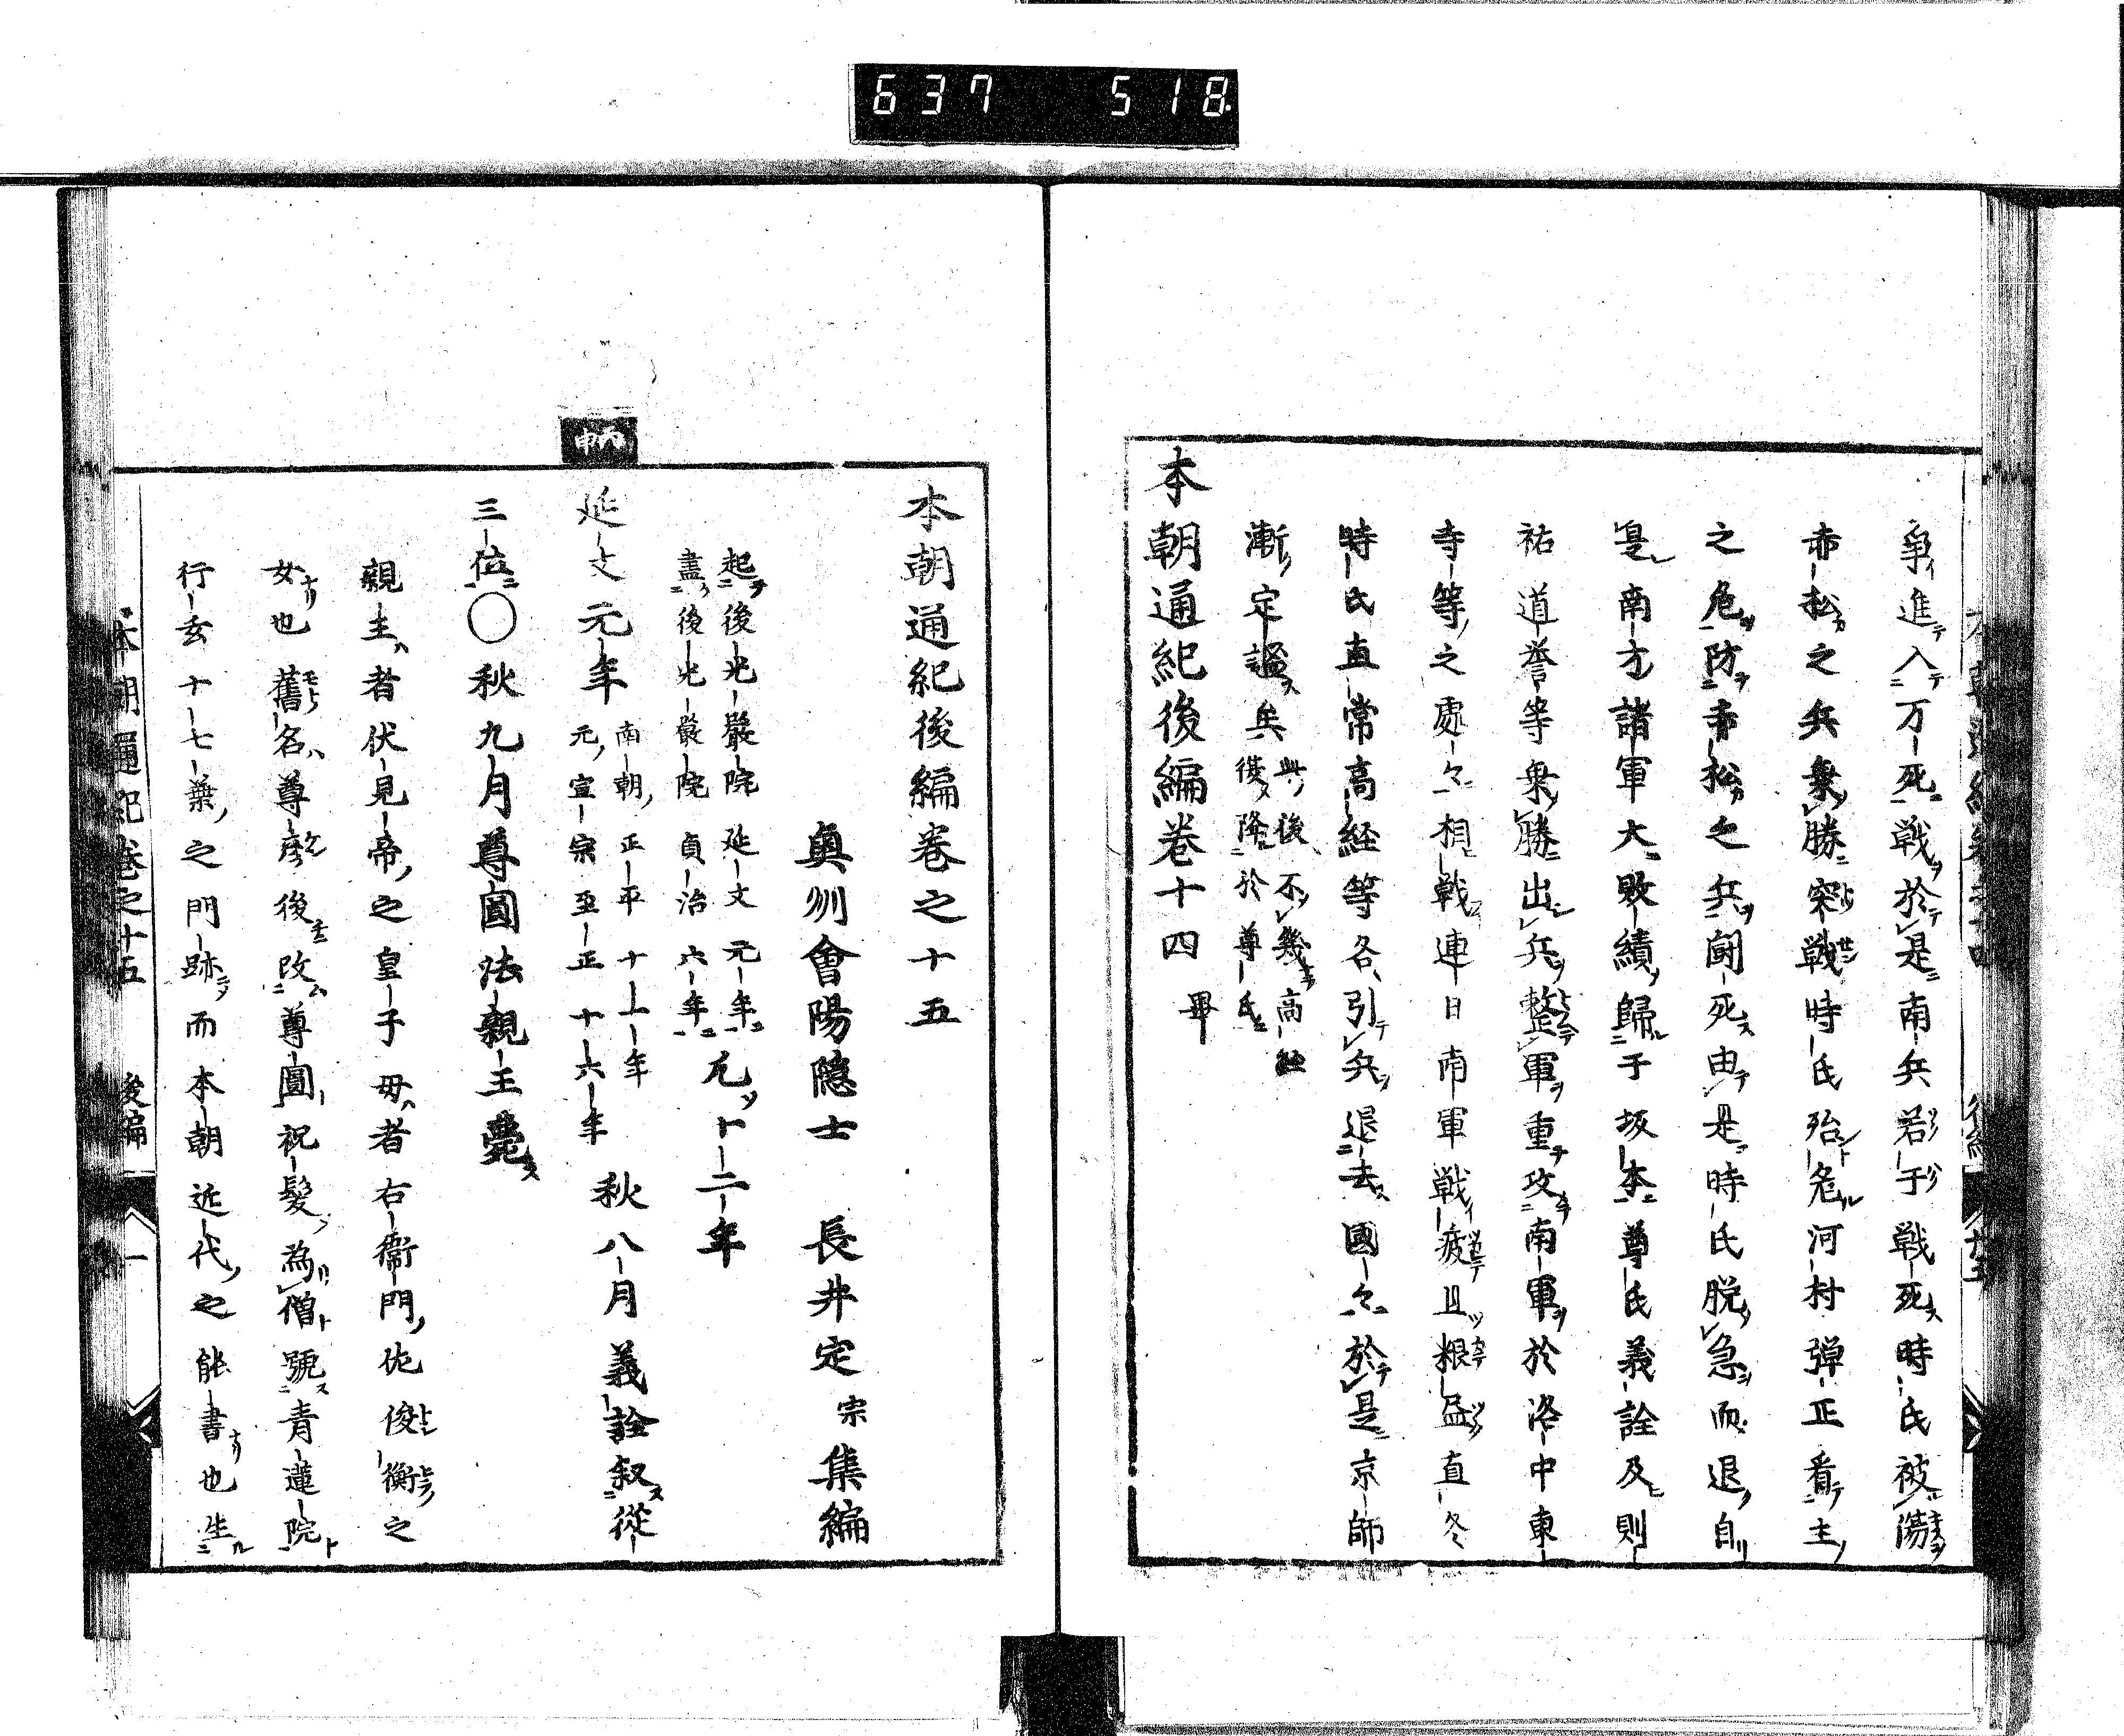 637 518
争進入万死戦於是南兵若于戦死時氏被瘍
赤松之兵衆勝突戦時氏殆危河村弾正看主
之危防赤松之兵闘死由是時氏脱急而退自
是南方諸軍大敗績歸于坂本尊氏義詮及則
祐道誉等衆勝出兵整軍重攻南軍於洛中東
寺等之處々相戦連日南軍戦疲且粮盡直冬
時氏直常高経等各引兵退去國々於是京師
漸定謐矣 其後不幾高経復降於尊氏
本朝通紀後編巻十四 畢
本朝通紀後編巻之十五
奥州會陽隠士 長井定宗集編
起後光嚴院延文元年
盡後光嚴院貞治六年 凡十二年
丙申
延文元年 南朝正平十一年 元宣宗至正十六年 秋八月義詮叙從
三位○秋九月尊圓法親王薨
親王者伏見帝之皇子母者右衞門佐俊衡之
女也舊名尊彦後改尊圓祝髪為僧號青蓮院
行玄十七葉之門跡而本朝近代之能書也生
本朝通紀巻之十五 後編 一